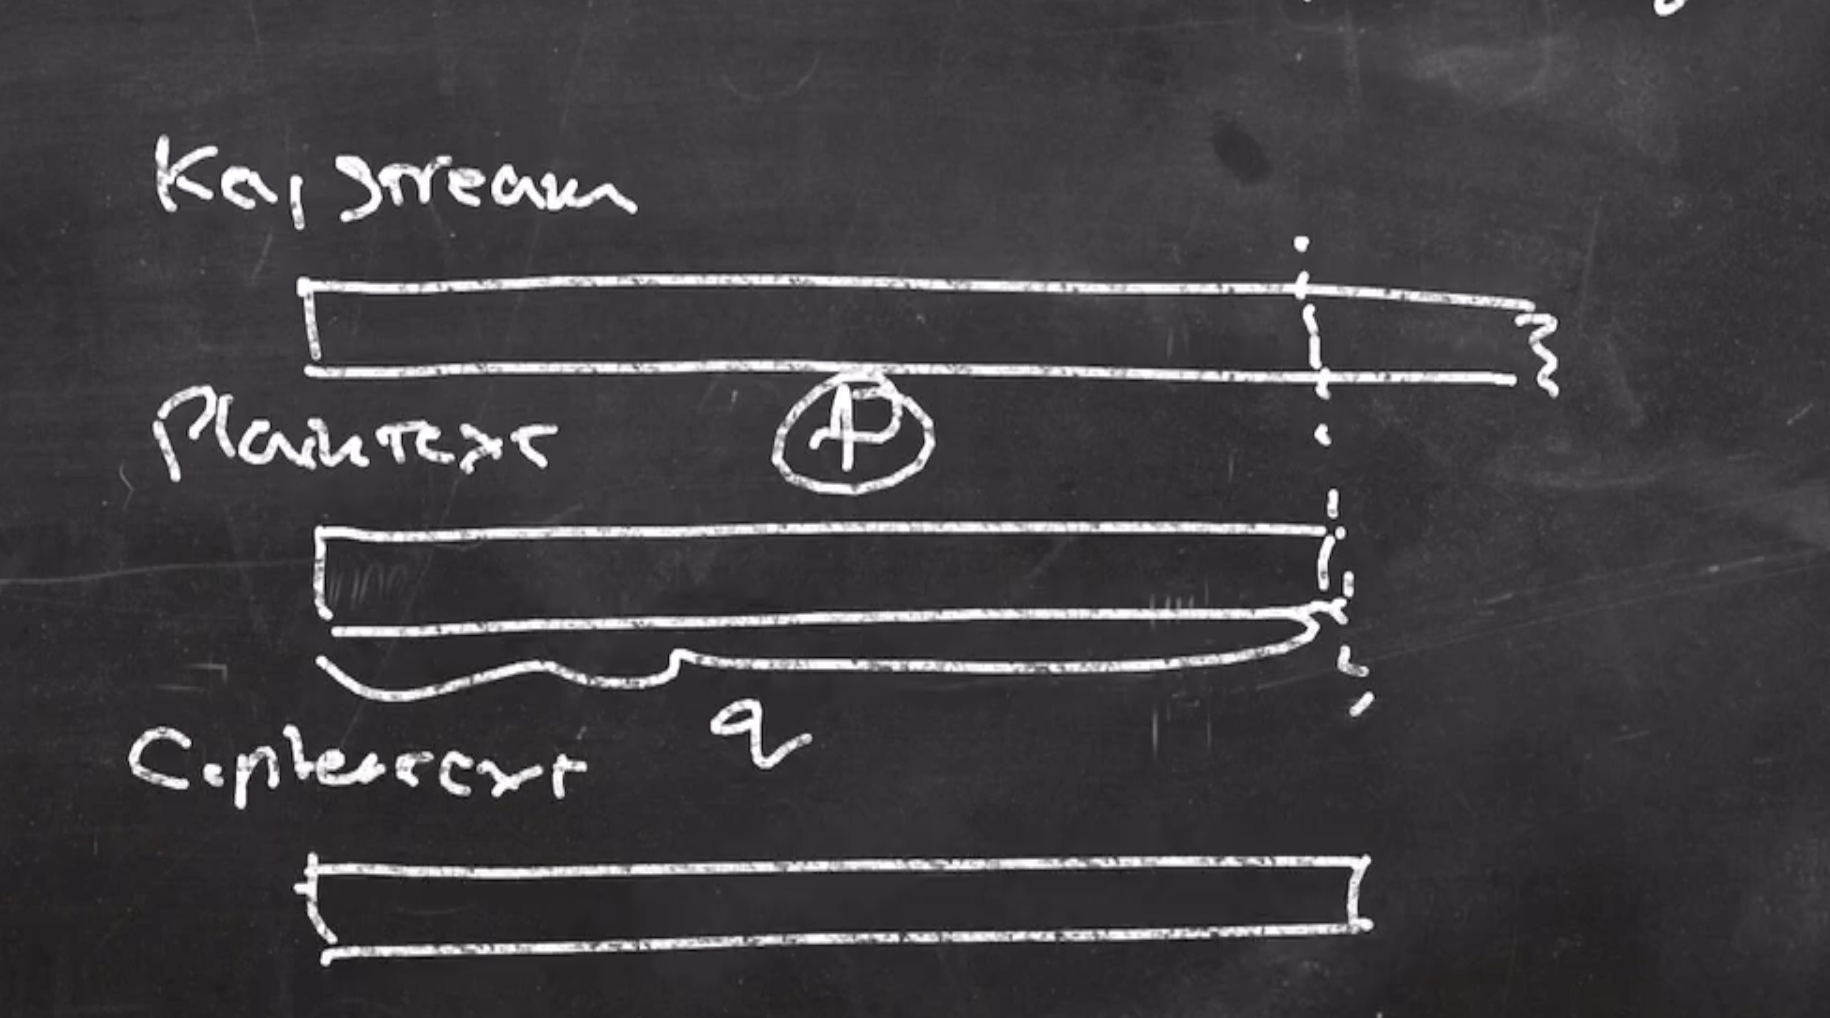 Key stream
Plaintext
⊕
q
Ciphertext